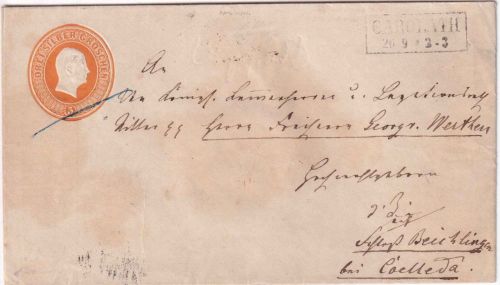 DREI SILBER GROSCHEN
CAROLATH
20 9 * 2-3
An
den Königl. Kammerherrn u. Legationsrath
Ritter pp Herrn Freiherrn Georg v. Werthern
Hochwohlgeboren
Schloß Beichlingen
bei Coelleda.